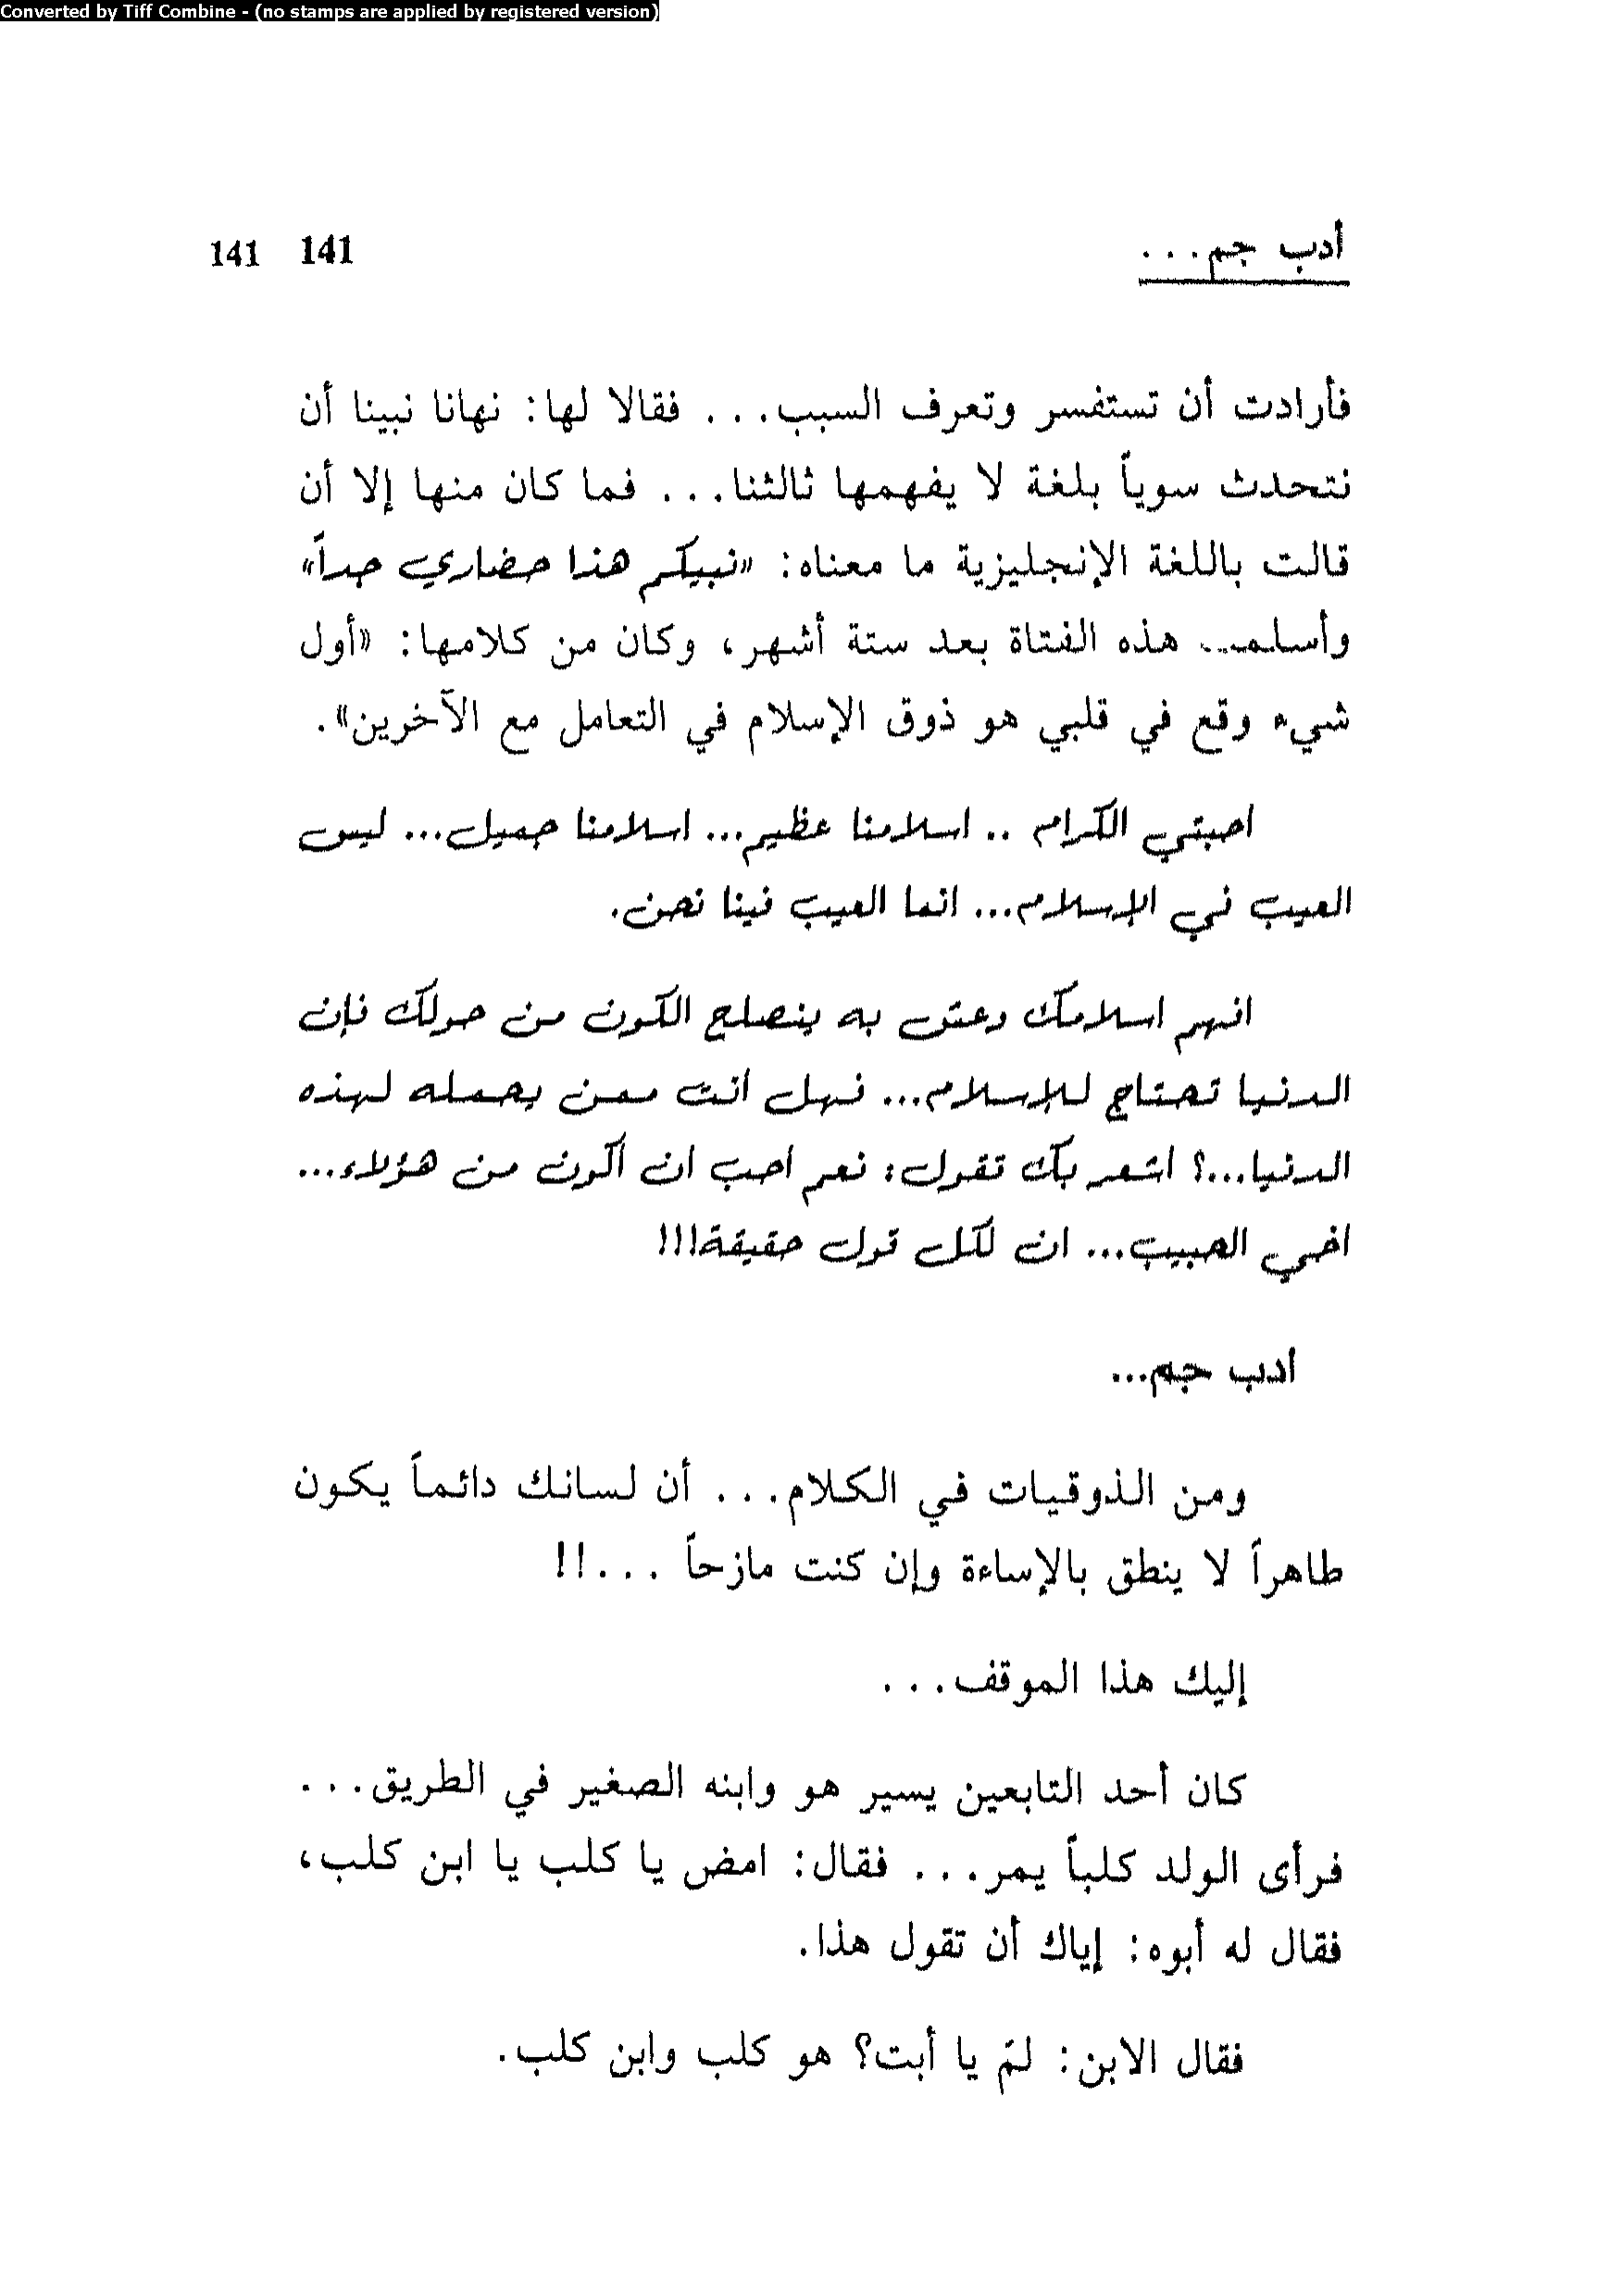 Converted by Tiff Combine - (no stamps are applied by registered version)
أدب جم... 141 141
فأرادت أن تستفسر وتعرف السبب... فقالا لها: نهانا نبينا أن
نتحدث سوياً بلغة لا يفهمها ثالثنا... فما كان منها إلا أن
قالت باللغة الإنجليزية ما معناه: «نبيكم هذا حضاري جداً»
وأسلمت هذه الفتاة بعد ستة أشهر، وكان من كلامها: «أول
شيء وقع في قلبي هو ذوق الإسلام في التعامل مع الآخرين».
أحبتي الكرام .. إسلامنا عظيم... إسلامنا جميل... ليس
العيب في الإسلام... إنما العيب فينا نحن.
افهم إسلامك وعش به ينصلح الكون من حولك فإن
الدنيا تحتاج للإسلام... فهل أنت ممن يحمله لهذه
الدنيا...؟ أشعر بك تقول: نعم أحب أن أكون من هؤلاء...
أخي الحبيب... إن لكل قول حقيقة!!!
أدب جم...
ومن الذوقيات في الكلام... أن لسانك دائماً يكون
طاهراً لا ينطق بالإساءة وإن كنت مازحاً ...!!
إليك هذا الموقف...
كان أحد التابعين يسير هو وابنه الصغير في الطريق...
فرأى الولد كلباً يمر... فقال: امض يا كلب يا ابن كلب،
فقال له أبوه: إياك أن تقول هذا.
فقال الابن: لمَ يا أبت؟ هو كلب وابن كلب.